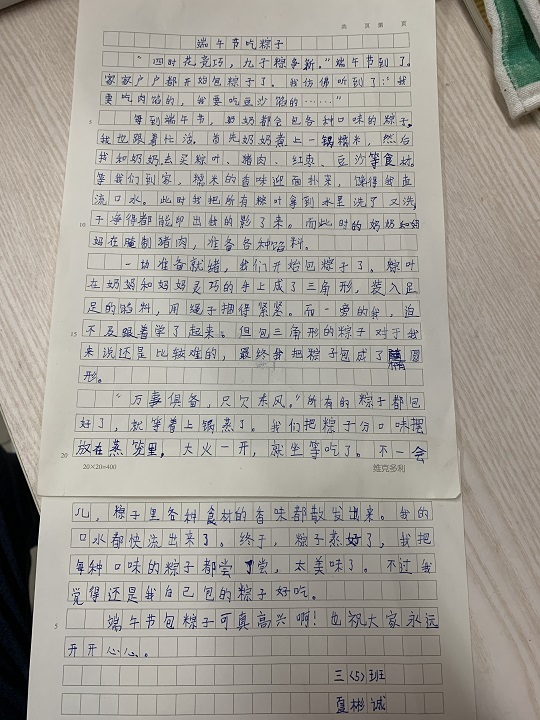 共 页 第 页
端午节吃粽子
“四时花竞巧，九子粽争新。”端午节到了。
家家户户都开始包粽子了。我仿佛听到了：“我
要吃肉馅的，我要吃豆沙馅的……”
5 每到端午节，奶奶都会包各种口味的粽子。
我也跟着忙活。首先奶奶煮上一锅糯米，然后
我和奶奶去买粽叶、猪肉、红枣、豆沙等食材。
等我们到家，糯米的香味迎面扑来，馋得我直
流口水。此时我把所有粽叶拿到水里洗了又洗，
10 干净得都能印出我的影子来。而此时的奶奶和妈
妈在腌制猪肉，准备各种馅料。
一切准备就绪，我们开始包粽子了。粽叶
在奶奶和妈妈灵巧的手上成了三角形，装入足
足的馅料，用绳子捆得紧紧。而一旁的我，迫
15 不及跟着学了起来。但包三角形的粽子对于我
来说还是比较难的，最终我把粽子包成了圆
形。
“万事俱备，只欠东风。”所有的粽子都包
好了，就等着上锅蒸了。我们把粽子分口味摆
20 放在蒸笼里。大火一开，就坐等吃了。不一会
20×20=400 维克多利
儿，粽子里各种食材的香味都散发出来。我的
口水都快流出来了。终于，粽子蒸好了，我把
每种口味的粽子都尝了尝，太美味了。不过我
觉得还是我自己包的粽子好吃。
5 端午节包粽子可真高兴啊！也祝大家永远
开开心心。
三〈5〉班
夏彬诚